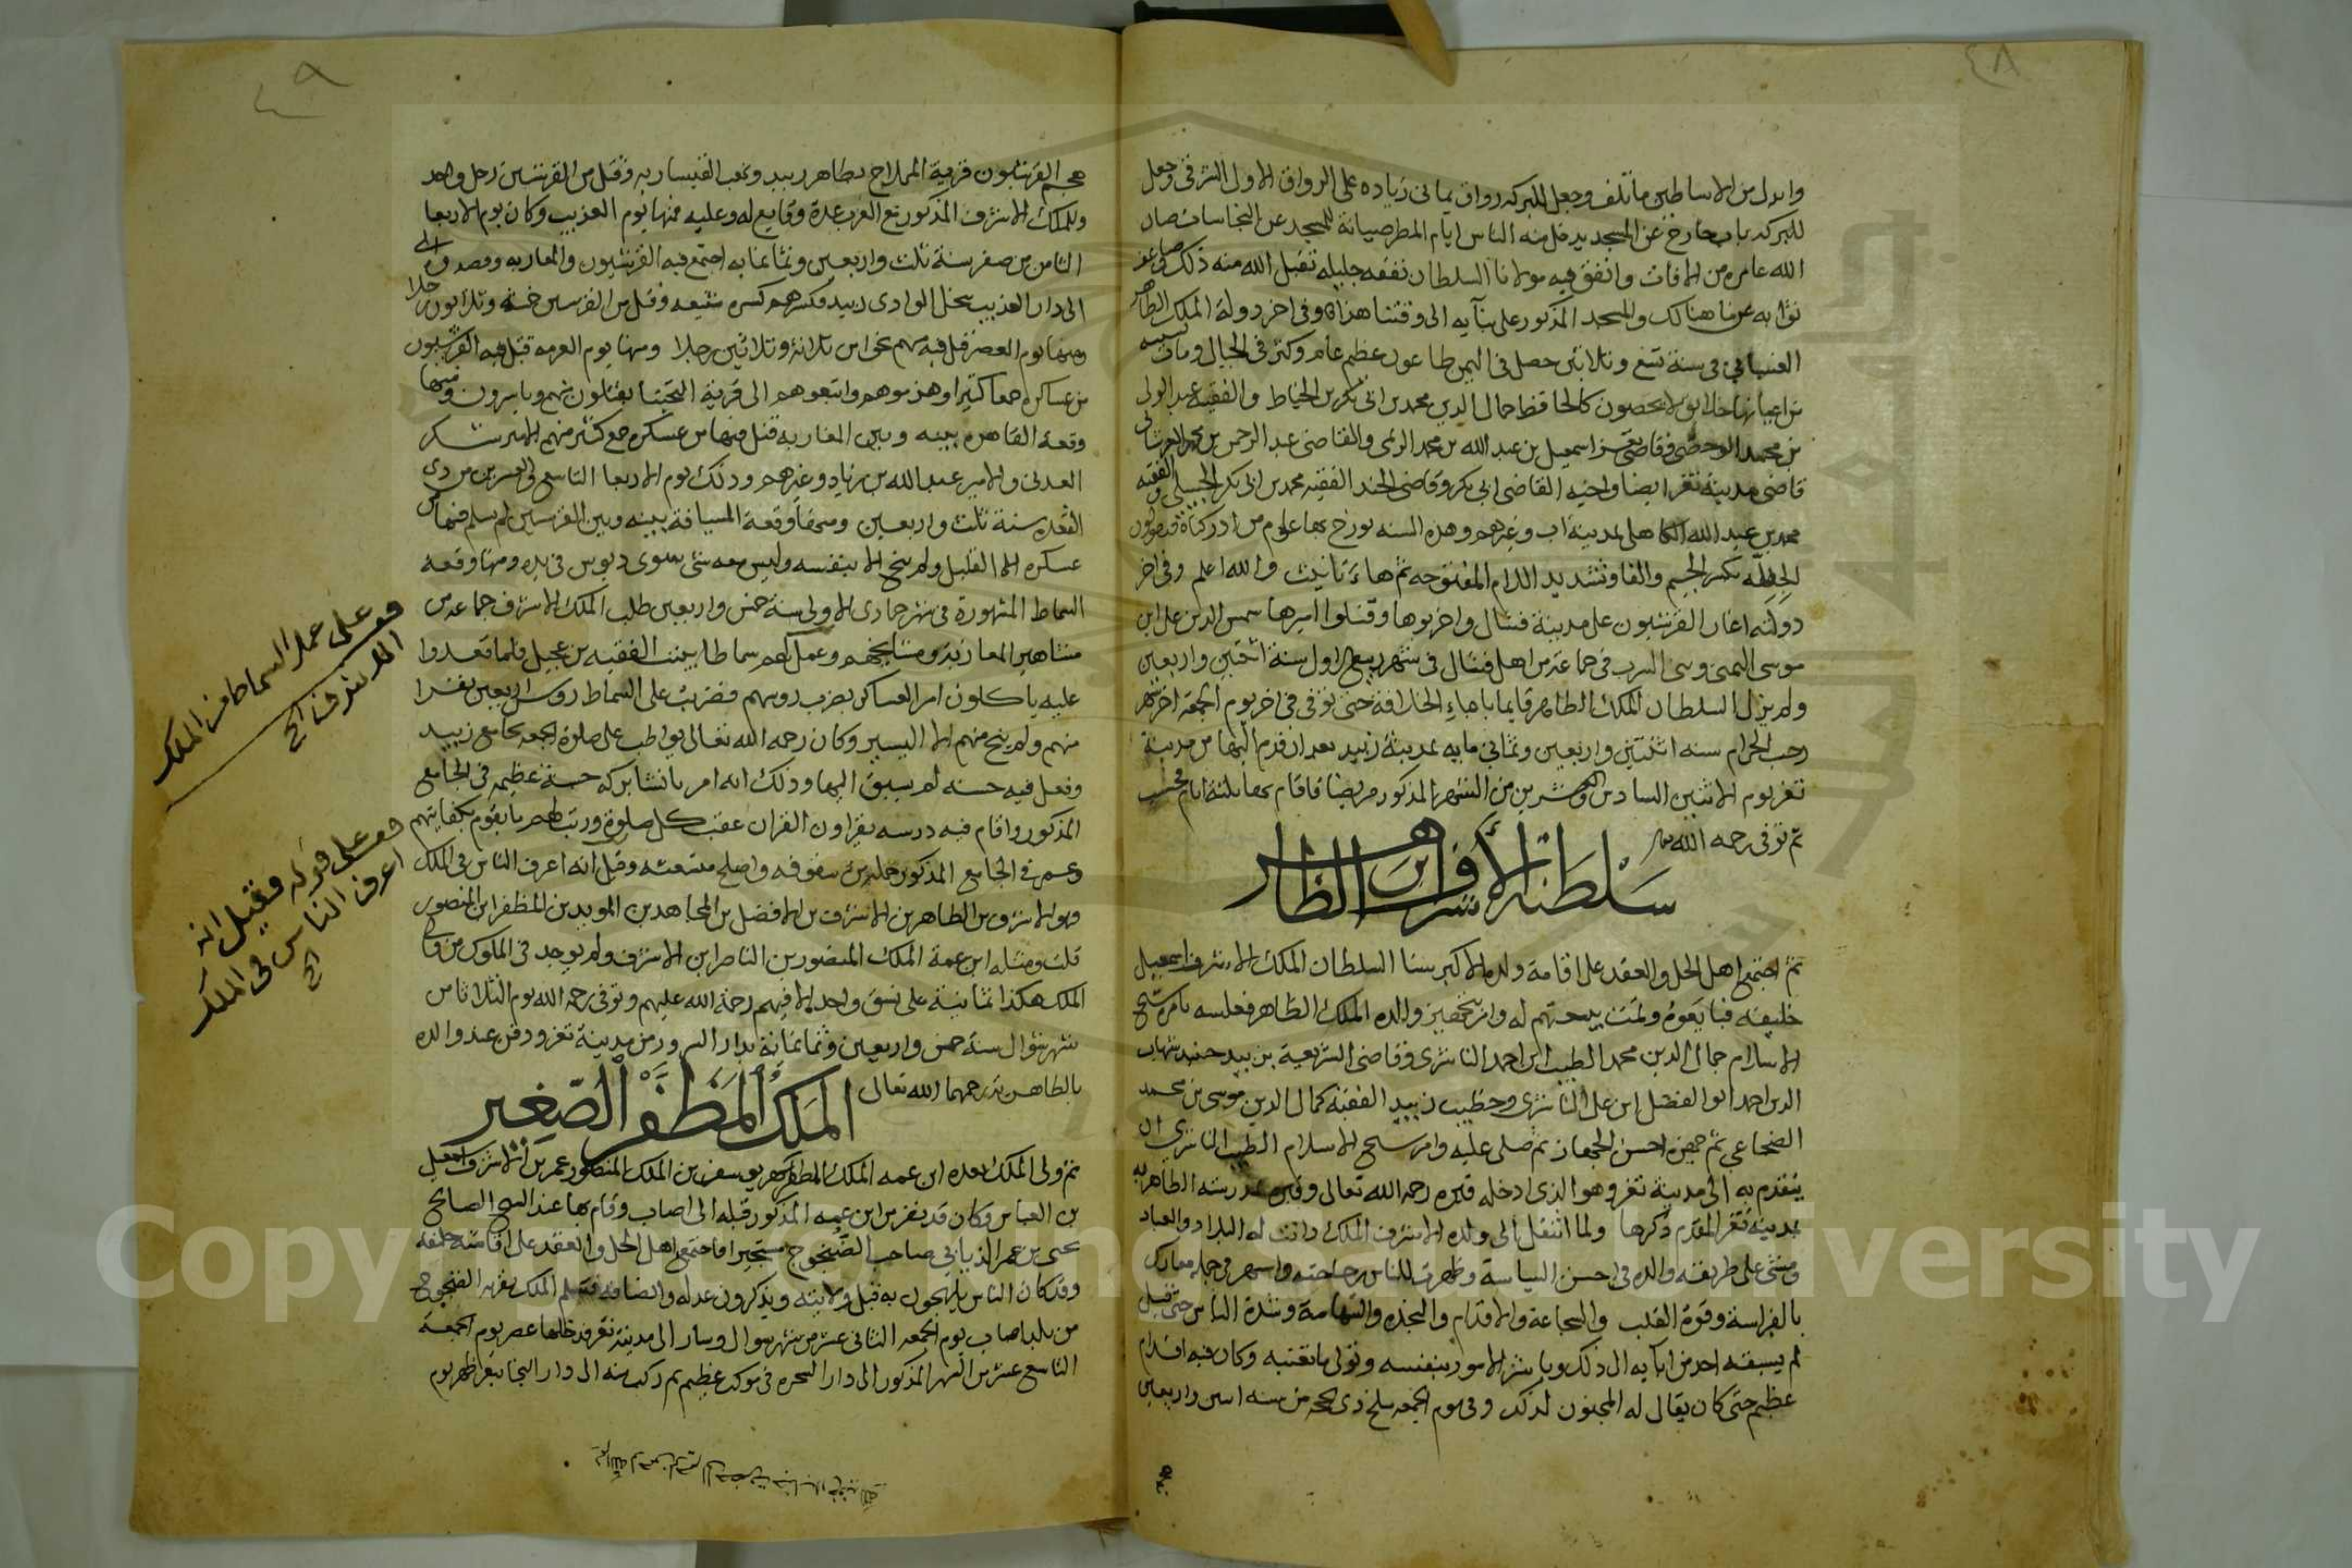 ٤٨
وابدل من الاساطين ما تلف وجعل للبركه رواق يماني زياده على الرواق الاول الشرقي وجعل
للبركه باب خارج عن المسجد يدخل منه الناس ايام المطر صيانة للمسجد عن النجاسات صار
الله عامره من الافات وانفق فيه مولانا السلطان نفقه جليله تقبل الله منه ذلك وضاعف
ثوابه عما هنالك والمسجد المذكور على بنايه الى وقتنا هذا وفي اخر دولة الملك الظاهر
الغساني في سنة تسع وثلاثين حصل في اليمن طاعون عظيم عام وكثر في الجبال ومات بسببه
من اعيانها خلايق لا يحصون كالحافظ جمال الدين محمد بن ابي بكر بن الخياط والفقيه عبد الولي
بن محمد الوحصي وقاضي تعز اسمعيل بن عبد الله بن محمد الريمي والقاضي عبد الرحمن بن محمد
قاضي مدينة تعز ايضا واخيه القاضي ابي بكر وقاضي الجند الفقيه محمد بن ابي بكر الجبيلي والفقيه
محمد بن عبد الله الكاهلي بمدينة اب وغيرهم وهذه السنه يورخ بها عوام من ادركناه
بكسر الجيم والفا وتشديد اللام المفتوحه ثم هاء تانيث والله اعلم وفي اخر
دولته اغار القرشيون على مدينة فشال واخربوها وقتلوا اميرها شمس الدين علي ابن
موسى في جماعة من اهل فشال في شهر ربيع الاول سنة اثنتين واربعين
ولم يزل السلطان الملك الظاهر قايما باعباء الخلافة حتى توفي في اخر يوم الجمعة اخر شهر
رجب الحرام سنه اثنتين واربعين وثماني مايه بمدينة زبيد بعد ان قدم اليها من مدينة
تعز يوم الاثنين السادس والعشرين من الشهر المذكور مريضا فاقام بها ثلثة ايام
ثم توفي رحمه الله
سلطنة الاشرف ابن الظاهر
ثم اجتمع اهل الحل والعقد على اقامة ولده الاكبر سنا السلطان الملك الاشرف اسمعيل
خليفه فبايعوه وتمت بيعتهم له وامر بتجهيز والده الملك الظاهر فغسله بامره شيخ
الاسلام جمال الدين محمد الطيب ابن احمد الناشري وقاضي الشريعة بزبيد حينئذ شهاب
الدين احمد ابو الفضل ابن علي الناشري وخطيب زبيد الفقيه كمال الدين موسى بن محمد
الضجاعي ثم جهزه احسن الجهاز ثم صلى عليه وامر شيخ الاسلام الطيب الناشري ان
يتقدم به الى مدينة تعز وهو الذي ادخله قبره رحمه الله تعالى وقبره بمدرسته الظاهريه
بمدينة تعز المقدم ذكرها ولما انتقل الى ولده الاشرف الملك دانت له البلاد والعباد
ومشى على طريقه والده في احسن السياسة وظهرت للناس رجاحته
بالفراسة وقوة القلب والشجاعة والاقدام والنجده والشهامة وشدة الباس حتى قيل
لم يسبقه احد من ابايه الى ذلك وباشر الامور بنفسه وتولى ما تعتبه وكان فيه اقدام
عظيم حتى كان يقال له المجنون لذلك وفي يوم الجمعه سلخ ذي الحجه من سنه اثنين واربعين
هجم
٤٩
هجم القرشيون قرية المملاح بظاهر زبيد ونهب القيساريه وقتل من القرشيين رجل واحد
وللملك الاشرف المذكور مع العرب عدة وقايع له وعليه منها يوم العذيب وكان يوم الاربعا
الثامن من صفر سنة ثلث واربعين وثمانمايه اجتمع فيه القرشيون والمعازبه وقصدوا
الى دار العذيب بنخل الوادي زبيد فكسرهم كسره شنيعه وقتل من القرشيين خمسة وثلاثون رجلا
ومنها يوم القصر قتل فيه منهم نحوا من ثلاثة وثلاثين رجلا ومنها يوم العرمه قتل فيه القرشيون
من عساكره جمعا كثيرا وهزموهم واتبعوهم الى قرية التحيتا يقتلون منهم وياسرون ومنها
وقعة القاهره بينه وبين المعازبه قتل فيها من عسكره جمع كثير منهم الامير
العدني والامير عبد الله بن زياد وغيرهم وذلك يوم الاربعا التاسع والعشرين من ذي
القعده سنة ثلث واربعين ومنها وقعة المسيافة بينه وبين القرشيين لم يسلم فيها من
عسكره الا القليل ولم ينج الا بنفسه وليس معه شي سوى دبوس في يده ومنها وقعه
السماط المشهورة في شهر جمادى الاولى سنة خمس واربعين طلب الملك الاشرف جماعه من
مشاهير المعازبة ومشايخهم وعمل لهم سماطا ببيت الفقيه بن عجيل فلما قعدوا
عليه ياكلون امر العساكر بضرب روسهم فضربت على السماط روس اربعين نفرا
منهم ولم ينج منهم الا اليسير وكان رحمه الله تعالى يواظب على صلاة الجمعه بجامع زبيد
وفعل فيه حسنه لم يسبق اليها وذلك انه امر بانشا بركه حسنة عظيمه في الجامع
المذكور واقام فيه درسه يقراون القران عقب كل صلوة ورتب لهم ما يقوم بكفايتهم
وعمر في الجامع المذكور سقوفه واصلح متشعثه وقيل انه اعرف الناس في الملك
وهو الاشرف بن الظاهر بن الاشرف بن الافضل بن المجاهد بن المويد بن المظفر ابن المنصور
قلت ومثله ابن عمه الملك المنصور بن الناصر ابن الاشرف ولم يوجد في الملوك من ولي
الملك هكذا ثمانية على نسق واحد الا فيهم رحمة الله عليهم وتوفي رحمه الله يوم الثلاثا من
شهر شوال سنة خمس واربعين وثمانمائة بدار السرور من مدينة تعز ودفن عند والده
بالظاهرية رحمهما الله تعالى
الملك المظفر الصغير
ثم ولي الملك بعده ابن عمه الملك المظفر يوسف بن الملك المنصور عمر بن الاشرف اسمعيل
بن العباس وكان قد نفر من ابن عمه المذكور قبله الى اصاب وقام بها عند الشيخ الصالح
يحيى بن عمر الذيابي صاحب الضنجوج مستجيرا فاجتمع اهل الحل والعقد على اقامته خليفه
وقد كان الناس يلهجون به قبل ولايته ويذكرون عدله وانصافه فتسلم الملك بقريه الضنجوج
من بلد اصاب يوم الجمعه الثاني عشر من شهر شوال وسار الى مدينة تعز فدخلها عصر يوم الجمعة
التاسع عشر من الشهر المذكور الى دار الشجره في موكب عظيم ثم ركب منه الى دار النجا بتعز ظهر يوم
قف على عمل السماط من الملك
الاشرف الخ
قف على قوله وقيل انه
اعرف الناس في الملك
الخ
Copyright © King Saud University